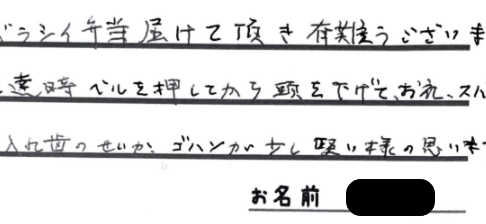 ラシイ弁当届けて頂き有難うございま
達時ベルを押してから頭を下げて、お礼、スバ
入れ歯のせいか、ゴハンが少し堅い様の思いま
お名前